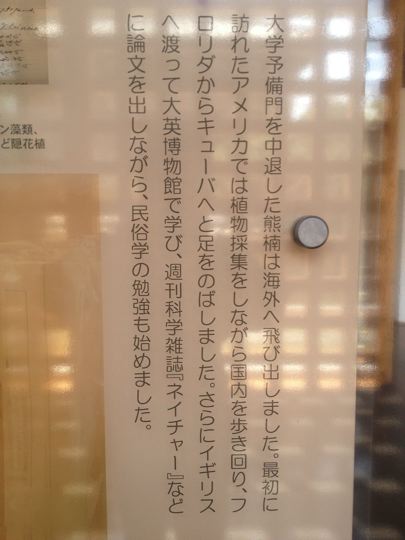 大学予備門を中退した熊楠は海外へ飛び出しました。最初に
訪れたアメリカでは植物採集をしながら国内を歩き回り、フ
ロリダからキューバへと足をのばしました。さらにイギリス
へ渡って大英博物館で学び、週刊科学雑誌『ネイチャー』など
に論文を出しながら、民俗学の勉強も始めました。
ン藻類、
ど隠花植